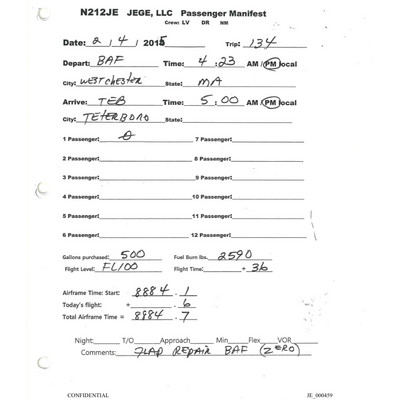 N212JE JEGE, LLC Passenger Manifest
Crew: LV DR NM
Date: 2 / 4 / 2015 Trip: 134
Depart: BAF Time: 4 : 23 AM / PM local
City: WESTCHESTER State: MA
Arrive: TEB Time: 5 : 00 AM / PM local
City: TETERBORO State:
1 Passenger: 0 7 Passenger:
2 Passenger: 8 Passenger:
3 Passenger: 9 Passenger:
4 Passenger: 10 Passenger:
5 Passenger: 11 Passenger:
6 Passenger: 12 Passenger:
Gallons purchased: 500 Fuel Burn lbs. 2590
Flight Level: FL100 Flight Time: + 36
Airframe Time: Start: 8884 . 1
Today's flight: + . 6
Total Airframe Time = 8884 . 7
Night: T/O Approach Min Flex VOR
Comments: FLAP REPAIR BAF (ZERO)
CONFIDENTIAL JE_000459